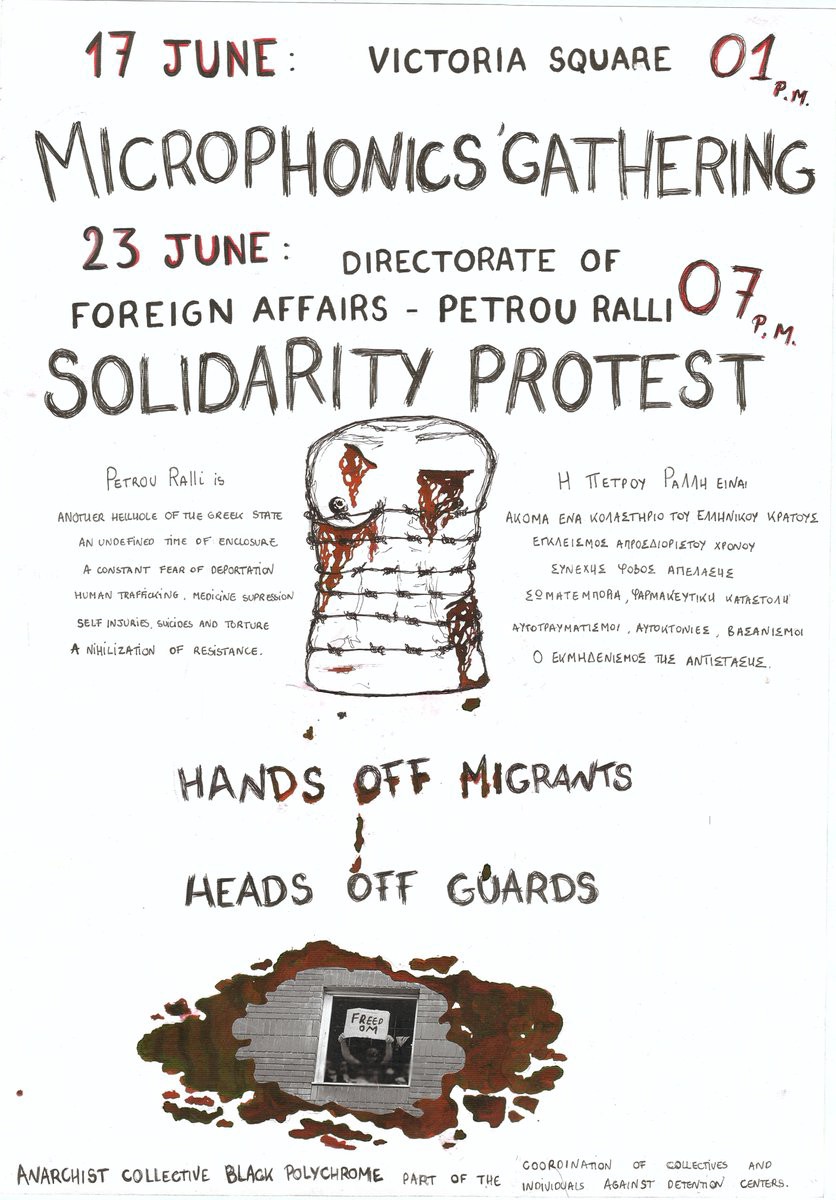 17 JUNE: VICTORIA SQUARE 01 P.M.
MICROPHONICS 'GATHERING
23 JUNE: DIRECTORATE OF
FOREIGN AFFAIRS - PETROU RALLI 07 P.M.
SOLIDARITY PROTEST
PETROU RALLi iS
ANOTHER HELLHOLE OF THE GREEK STATE
AN UNDEFINED TIME OF ENCLOSURE
A CONSTANT FEAR OF DEPORTATION
HUMAN TRAFFICKING. MEDICINE SUPRESSION
SELF INJURIES, SUICIDES AND TORTURE
A NIHILIZATION OF RESISTANCE.
Η ΠΕΤΡΟΥ ΡΑΛΛΗ ΕΙΝΑΙ
ΑΚΟΜΑ ΕΝΑ ΚΟΛΑΣΤΗΡΙΟ ΤΟΥ ΕΛΛΗΝΙΚΟΥ ΚΡΑΤΟΥΣ
ΕΓΚΛΕΙΣΜΟΣ ΑΠΡΟΣΔΙΟΡΙΣΤΟΥ ΧΡΟΝΟΥ
ΣΥΝΕΧΗΣ ΦΟΒΟΣ ΑΠΕΛΑΣΗΣ
ΣΩΜΑΤΕΜΠΟΡΙΑ, ΦΑΡΜΑΚΕΥΤΙΚΗ ΚΑΤΑΣΤΟΛΗ
ΑΥΤΟΤΡΑΥΜΑΤΙΣΜΟΙ, ΑΥΤΟΚΤΟΝΙΕΣ, ΒΑΣΑΝΙΣΜΟΙ
Ο ΕΚΜΗΔΕΝΙΣΜΟΣ ΤΗΣ ΑΝΤΙΣΤΑΣΗΣ.
HANDS OFF MIGRANTS
HEADS OFF GUARDS
FREED
OM
ANARCHIST COLLECTIVE BLACK POLYCHROME PART OF THE COORDINATION OF COLLECTIVES AND
INDIVIDUALS AGAINST DETENTION CENTERS.